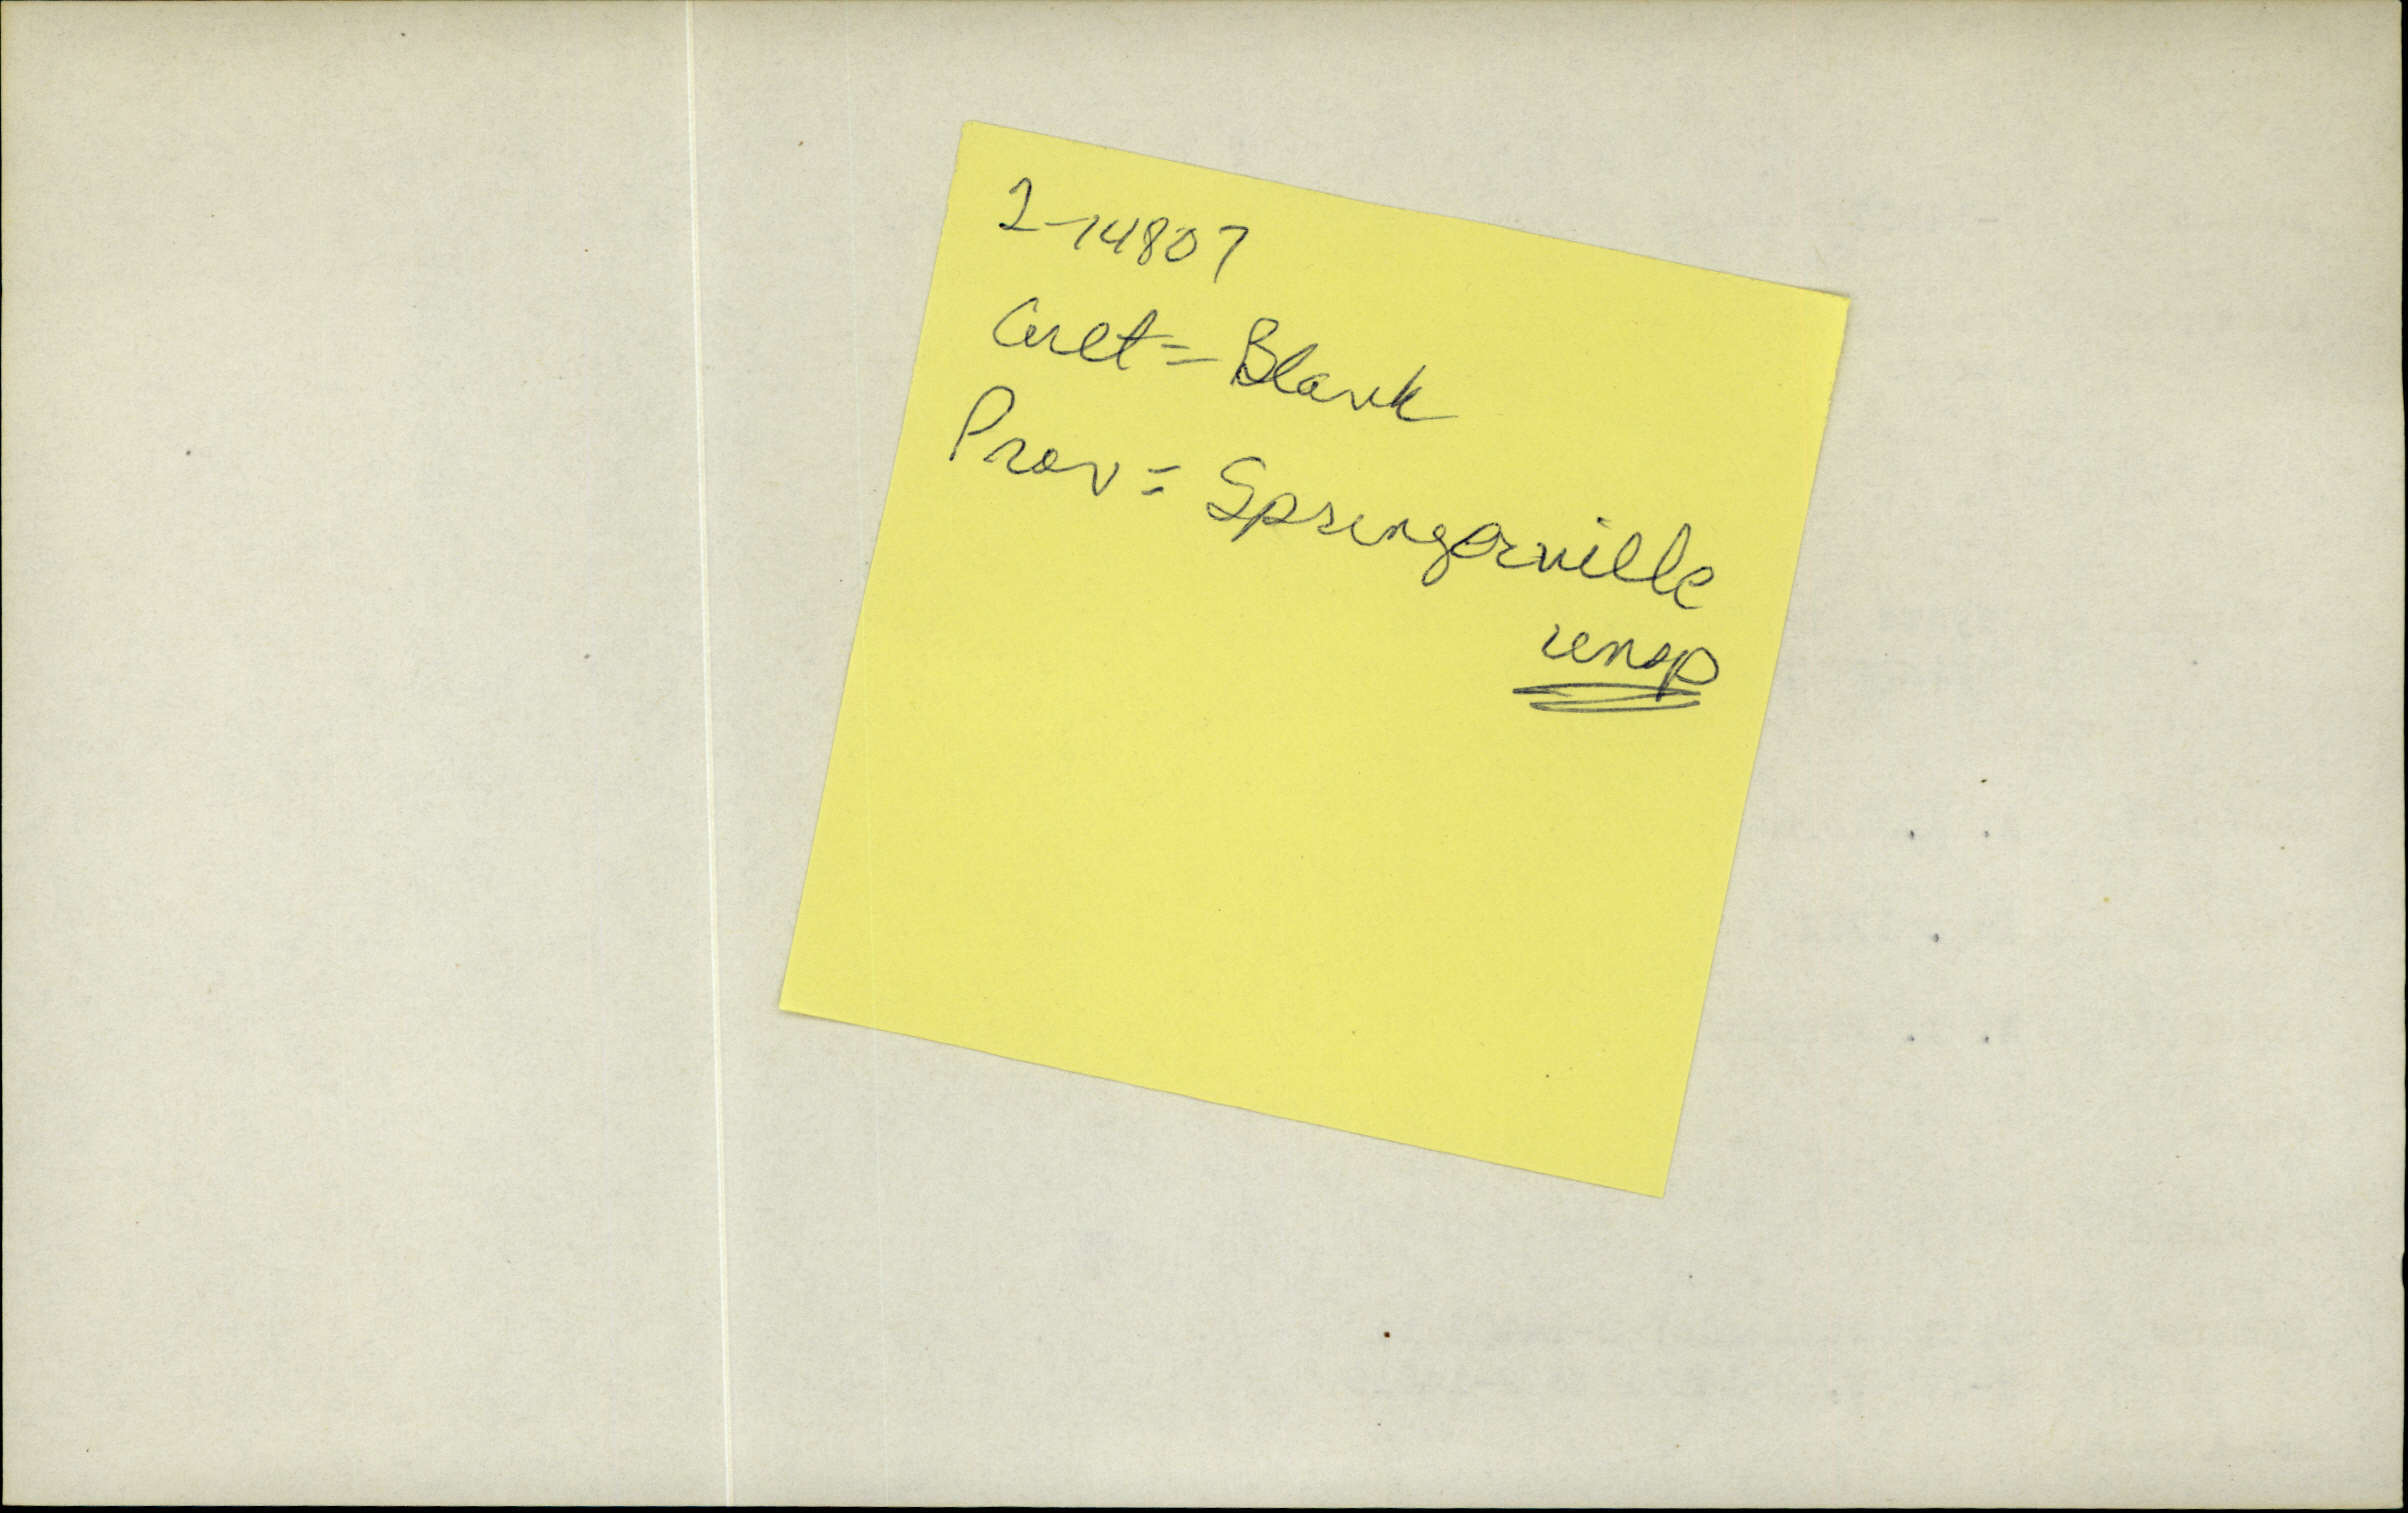 2-14807
Cult = Blank
Prov = Springerville
unsp